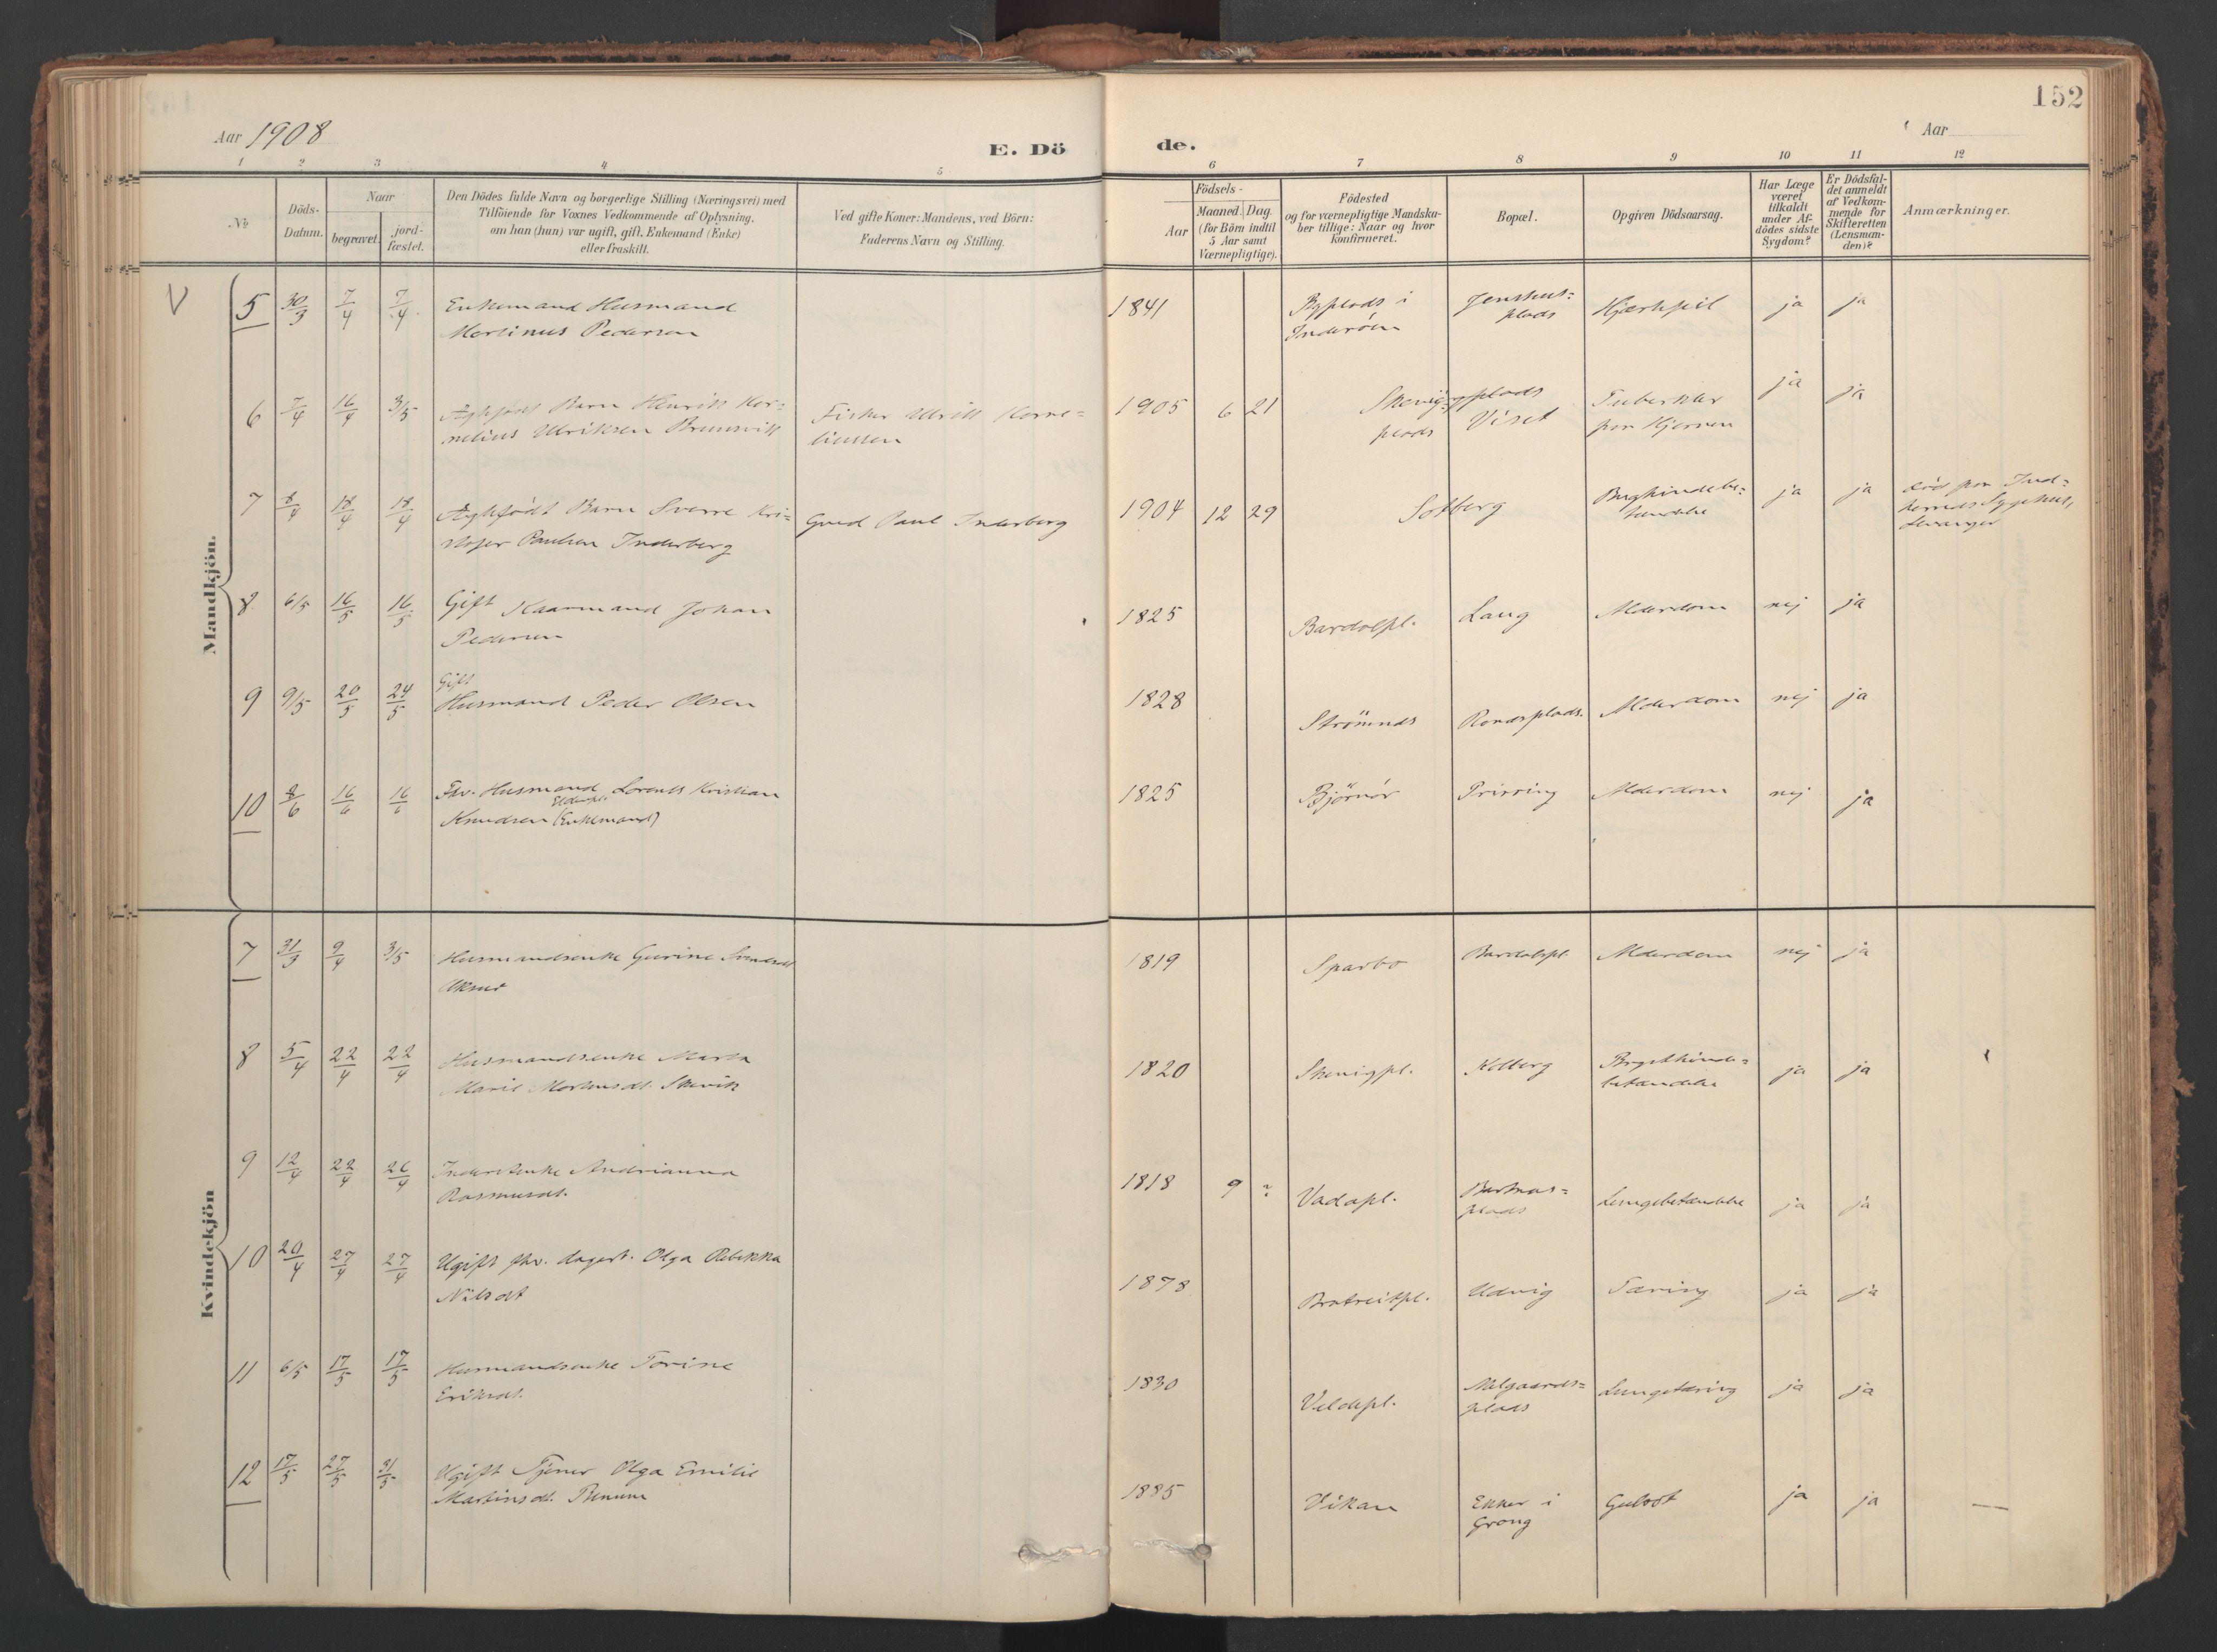 152
Aar 1908
E. Dö
de.
Aar
1 2 3 4 5 6 7 8 9 10 11 12
№
Döds-
Datum.
Naar
begravet.
jord-
fæstet.
Den Dödes fulde Navn og borgerlige Stilling (Næringsvei) med
Tilföiende for Voxnes Vedkommende af Oplysning,
om han (hun) var ugift, gift, Enkemand (Enke)
eller fraskilt.
Ved gifte Koner: Mandens, ved Börn:
Faderens Navn og Stilling.
Födsels-
Aar
Maaned. Dag.
(for Börn indtil
5 Aar samt
Værnepligtige).
Födested
og for værnepligtige Mandska-
ber tillige: Naar og hvor
konfirmeret.
Bopæl.
Opgiven Dödsaarsag.
Har Læge
været
tilkaldt
under Af-
dödes sidste
Sygdom?
Er Dödsfal-
det anmeldt
af Vedkom-
mende for
Skifteretten
(Lensman-
den)?
Anmærkninger.
Mandkjön.
5 30/3 7/4 7/4 Enkemand Husmand
Martinus Pedersen
1841 Byplads i
Inderöen
plads
Hjertefeil ja ja
6 7/4 16/4 3/5 Barn Henrik Kor=
nelius Ulriksen
Fisker Ulrik Korne=
liussen
1905 6 21
plads Viset
Tuberkler
paa Hjernen ja ja
7 8/4 18/4 18/4 Ægtefödt Barn Sverre Kri=
stofer Paulsen Inderberg
Gmd Paul Inderberg
1904 12 29 Solberg
Bughindebe=
tændelse ja ja
død paa Ind=
herreds Sygehus,
Levanger
8 6/5 16/5 16/5 Gift Kaarmand Johan
Pedersen
1825 Bardalspl. Laug Alderdom nej ja
9 9/5 20/5 24/5 Gift
Husmand Peder Olsen
1828 Strömnæs Alderdom nej ja
10 8/6 16/6 16/6 Fhv. Husmand Lorents Kristian
Knudsen (Enkemand)
1825 Björnör Alderdom nej ja
Kvindekjön
7 31/3 9/4 3/5 Husmandsenke Gurine
1819 Sparbo Bardalspl. Alderdom nej ja
8 5/4 22/4 22/4 Husmandsenke Marta
Marie Mortensdt. Skevik
1820 Skevigpl. Kolberg
betændelse ja ja
9 12/4 22/4 26/4 Andrianna
Rasmusdt.
1818 9 ? Vadapl.
plads
Lungebetændelse ja ja
10 20/4 27/4 27/4 Ugift fhv. Olga Rebekka
Nilsdt
1878 Utvig Tæring ja ja
11 6/5 17/5 17/5 Husmandsenke Torine
Eriksdt.
1830
plads
Lungetæring ja ja
12 17/5 27/5 31/5 Ugift Tjener Olga Emilie
Martinsdt. Benum
1885 Vikan
Ekker i
Grong
Gulsot ja ja —